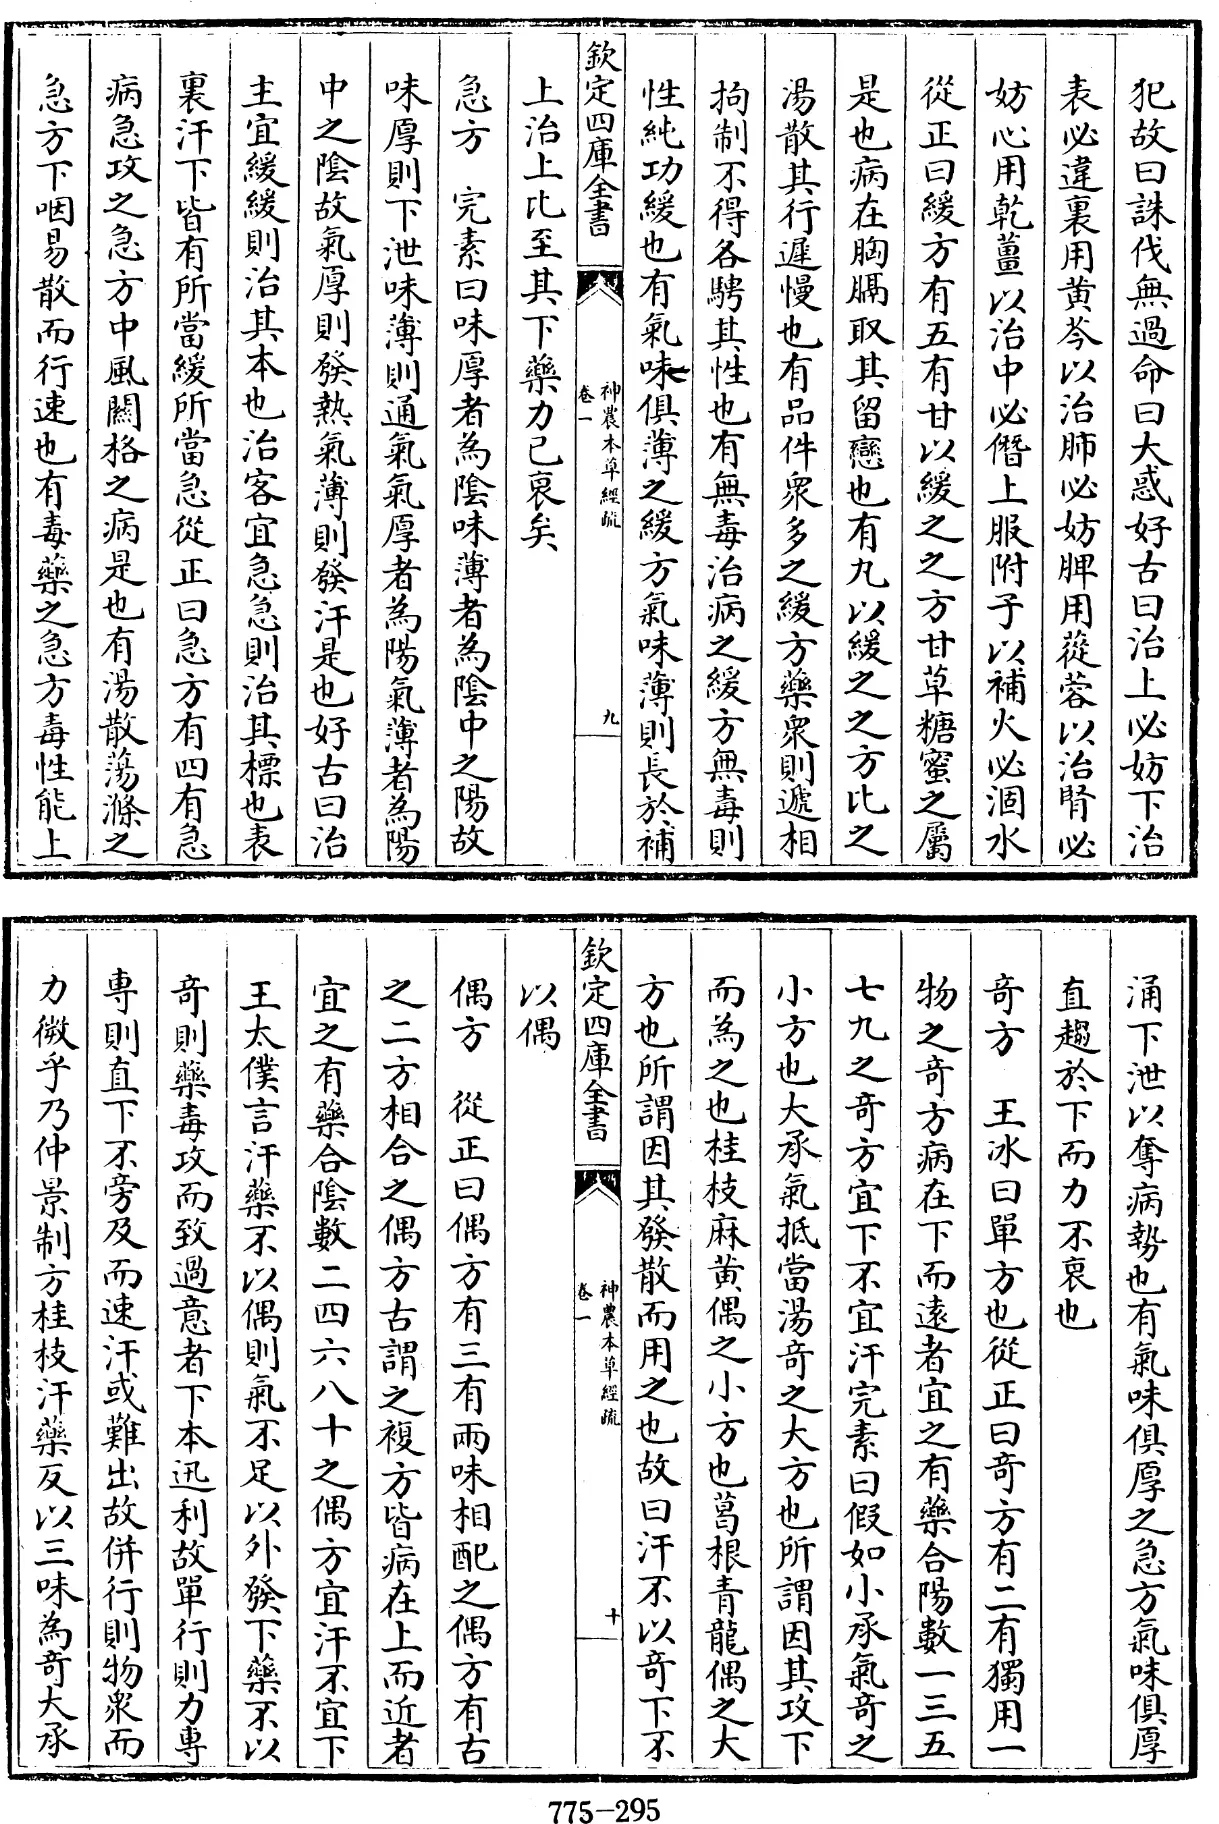 犯故曰誅伐無過命曰大惑好古曰治上必妨下治
表必違裏用黄芩以治肺必妨脾用蓯蓉以治腎必
妨心用乾薑以治中必僭上服附子以補火必涸水
從正曰緩方有五有甘以緩之之方甘草糖蜜之屬
是也病在胸膈取其留戀也有丸以緩之之方比之
湯散其行遲慢也有品件衆多之緩方藥衆則遞相
拘制不得各騁其性也有無毒治病之緩方無毒則
性純功緩也有氣味俱薄之緩方氣味薄則長於補
欽定四庫全書
神農本草經疏
卷一
九
上治上比至其下藥力已衰矣
急方 完素曰味厚者為陰味薄者為陰中之陽故
味厚則下泄味薄則通氣氣厚者為陽氣薄者為陽
中之陰故氣厚則發熱氣薄則發汗是也好古曰治
主宜緩緩則治其本也治客宜急急則治其標也表
裏汗下皆有所當緩所當急從正曰急方有四有急
病急攻之急方中風關格之病是也有湯散蕩滌之
急方下咽易散而行速也有毒藥之急方毒性能上
涌下泄以奪病勢也有氣味俱厚之急方氣味俱厚
直趨於下而力不衰也
奇方 王冰曰單方也從正曰奇方有二有獨用一
物之奇方病在下而遠者宜之有藥合陽數一三五
七九之奇方宜下不宜汗完素曰假如小承氣奇之
小方也大承氣抵當湯奇之大方也所謂因其攻下
而為之也桂枝麻黄偶之小方也葛根青龍偶之大
方也所謂因其發散而用之也故曰汗不以奇下不
欽定四庫全書
神農本草經疏
卷一
十
以偶
偶方 從正曰偶方有三有兩味相配之偶方有古
之二方相合之偶方古謂之複方皆病在上而近者
宜之有藥合陰數二四六八十之偶方宜汗不宜下
王太僕言汗藥不以偶則氣不足以外發下藥不以
奇則藥毒攻而致過意者下本迅利故單行則力專
專則直下不旁及而速汗或難出故併行則物衆而
力微乎乃仲景制方桂枝汗藥反以三味為奇大承
775-295